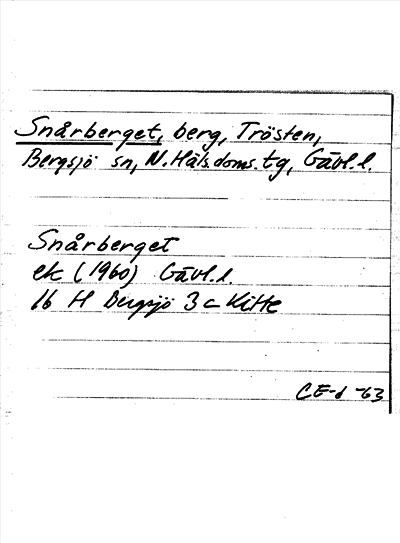 Snårberget, berg, Trösten,
Bergsjö sn, N. Häls. doms. tg, Gävl. l.
Snårberget
ek (1960) Gävl. l.
16 H Bergsjö 3 c Kitte
CE-d -63